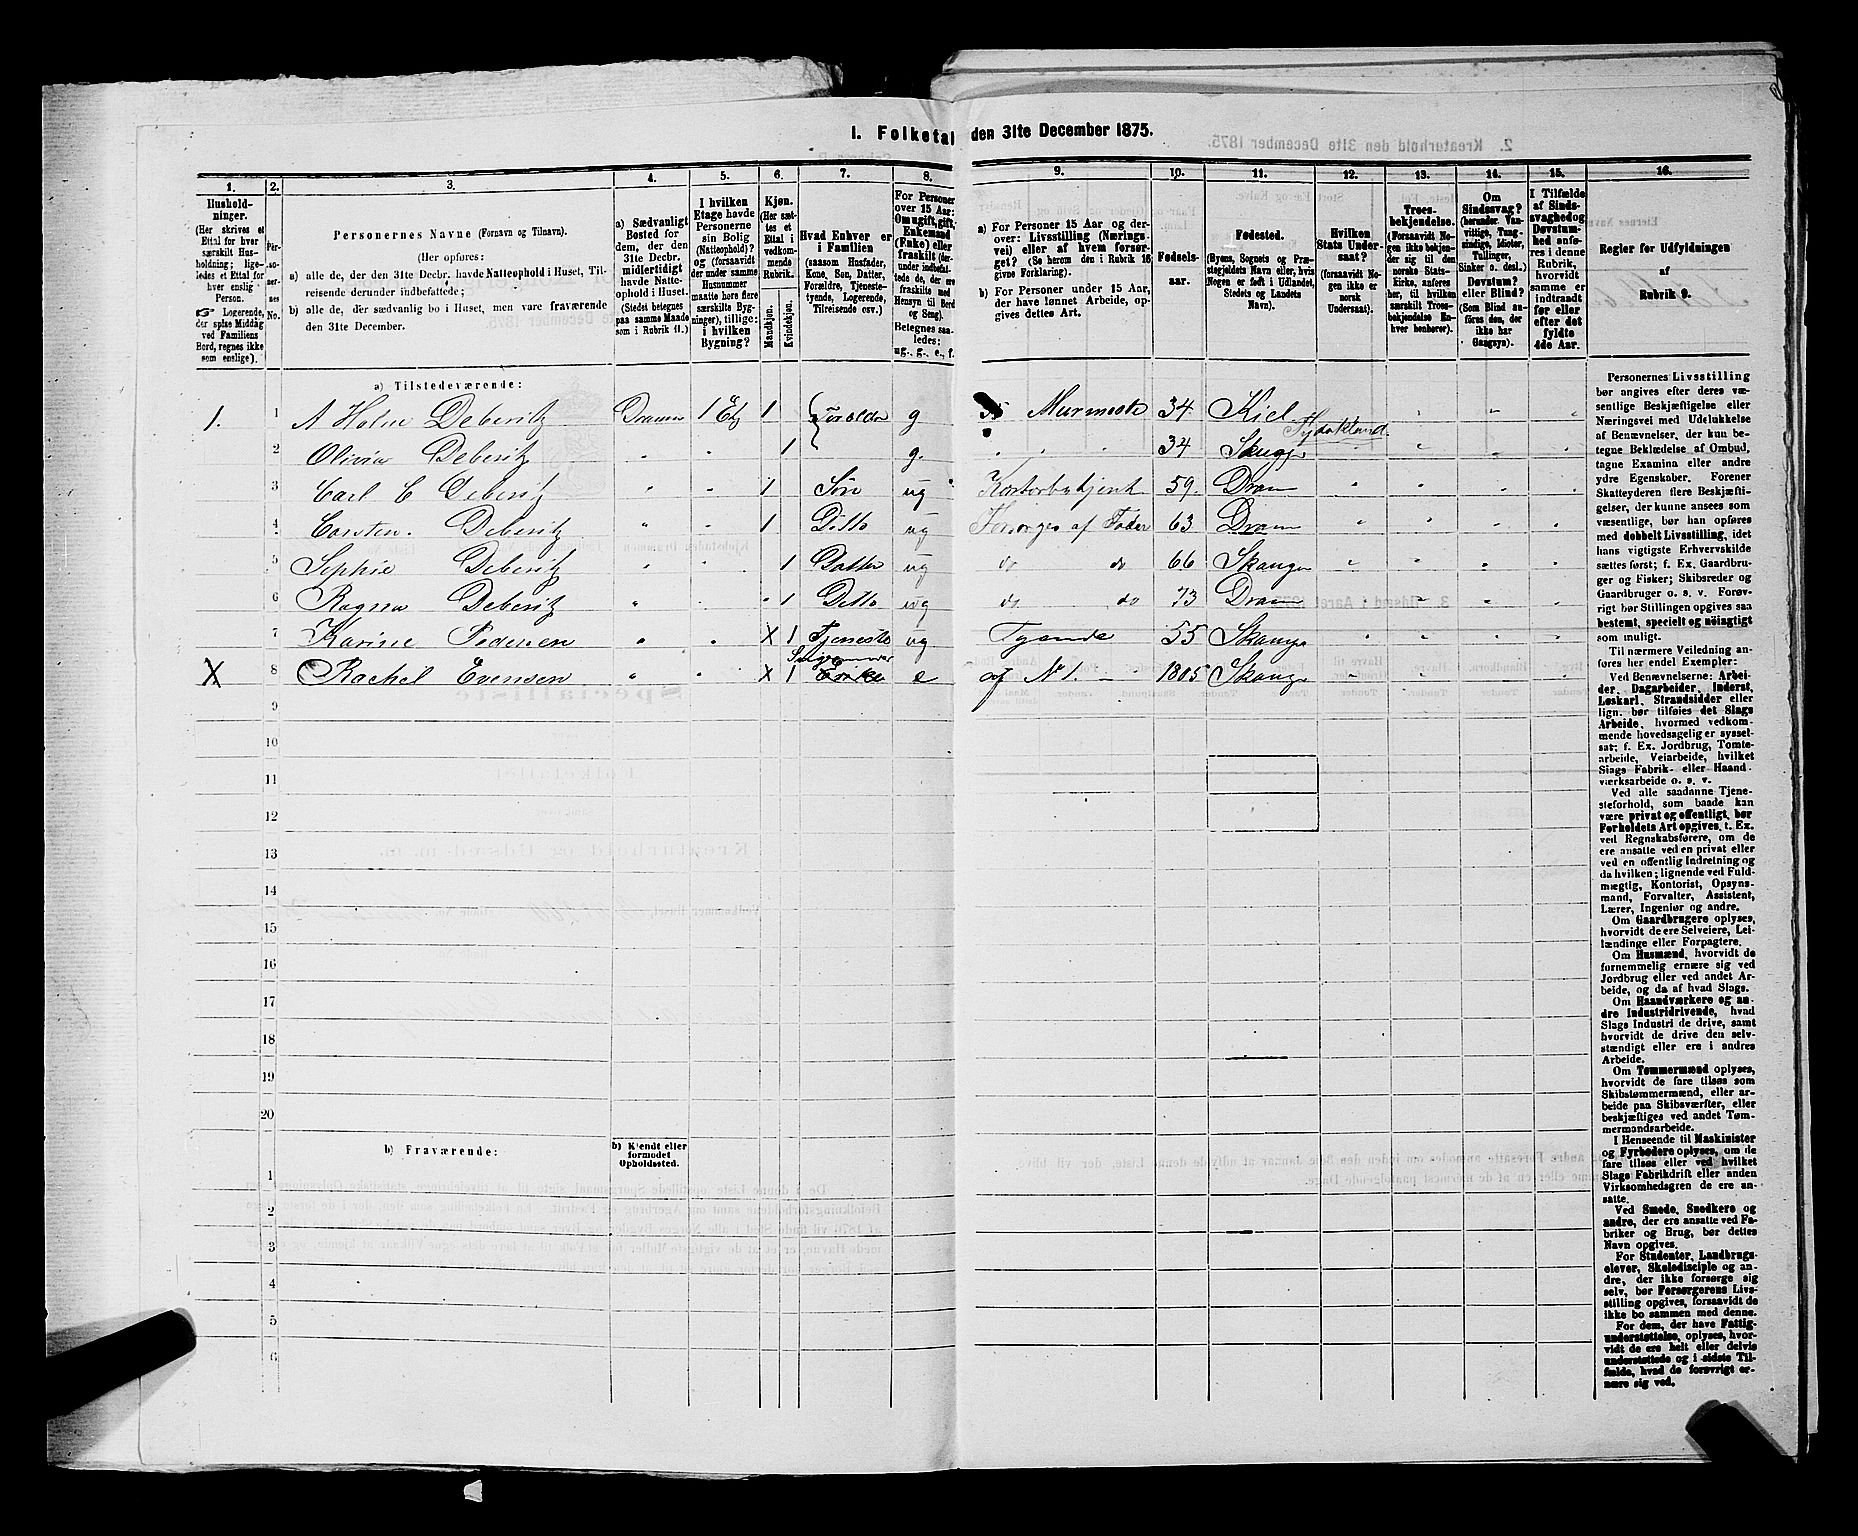 I. Folketal den 31te December 1875.
1. 2. 3. 4. 5. 6. 7. 8. 9. 10. 11. 12. 13. 14. 15. 16.
Husholdninger.
(Her skrives et
Ettal for hver
særskilt Husholdning;
ligeledes et Ettal for
hver enslig
Person.
Logerende,
der spise Middag
ved Familiens
Bord, regnes ikke
som enslige).
Personernes No.
Personernes Navne (Fornavn og Tilnavn).
(Her opføres:
a) alle de, der den 31te Decbr. havde Natteophold i Huset, Tilreisende
derunder indbefattede;
b) alle de, der sædvanlig bo i Huset, men vare fraværende
den 31te December.
a) Sædvanligt
Bosted for
dem, der den
31te Decbr.
midlertidigt
havde Natteophold
i Huset.
(Stedet betegnes
paa samme Maade
som i Rubrik 11.)
I hvilken
Etage havde
Personerne
sin Bolig
(Natteophold)?
og (forsaavidt
der under samme
Husnummer
maatte høre flere
særskilte Bygninger),
tillige:
i hvilken
Bygning?
Kjøn.
(Her sættes
et
Ettal i
vedkommende
Rubrik.
Mandkjøn.
Kvindekjøn.
Hvad Enhver er
i Familien
(saasom Husfader,
Kone, Søn, Datter,
Forældre, Tjenestetyende,
Logerende,
Tilreisende osv.)
For Personer
over 15 Aar:
Om ugift, gift,
Enkemand
(Enke) eller
fraskilt (derunder
indbefattede
de, der ere
fraskilte med
Hensyn til Bord
og Seng).
Betegnes saaledes:
ug., g., e., f.
a) For Personer 15 Aar og derover:
Livsstilling (Næringsvei)
eller af hvem forsørget?
(Se herom den i Rubrik 16
givne Forklaring).
b) For Personer under 15 Aar,
der have lønnet Arbeide, opgives
dettes Art.
Fødselsaar.
Fødested.
(Byens, Sognets og Præstegjeldets
Navn eller, hvis
Nogen er født i Udlandet,
Stedets og Landets
Navn).
Hvilken
Stats Undersaat?
(forsaavidt Nogen
ikke er
norsk
Undersaat).
Troesbekjendelse.
(Forsaavidt Nogen
ikke bekjender
sig til den
norske Statskirke,
anføres
her, til hvilken
særskilt Troesbekjendelse
Enhver
henhører).
Om
Sindssvag?
(herunder Vanvittige,
Tungsindige,
Idioter,
Tullinger,
Sinker o. desl.)
Døvstum?
eller Blind?
(Som Blind anføres
den, der
ikke har
Gangsyn).
I Tilfælde
af Sindssvaghed
og
Døvstumhed
anføres
i denne
Rubrik,
hvorvidt
samme er
indtraadt
før eller
efter det
fyldte
4de Aar.
Regler for Udfyldningen
af
Rubrik 9.
a) Tilstedeværende:
1. 1 A Holm Deberitz Dramn 1 Etg 1 Foreldre g Murmester 34 Kiel Tydskland
2 Olivia Deberitz 1 g. 34 Skauger
3 Carl C Deberitz 1 Søn ug Kontorbetjent 59. Dram
4 Carsten. Deberitz 1 Ditto ug Forsørges af Fader 63 Dram
5 Sophie Deberitz 1 Datter ug do do 66 Skauger
6 Ragna Deberitz 1 Ditto ug do do 73 Dram
7 Karine Pedersen X 1 Tjeneste ug Tyende 55 Skauger
X 8 Rachel Evensen X 1 Svigermoder Enke e af No 1. 1805 Skauger
9
10
11
12
13
14
15
16
17
18
19
20
b) Fraværende:
b) Kjendt eller
formodet
Opholdssted.
1
2
3
4
5
6
Personernes Livsstilling
bør angives efter deres væsentlige
Beskjæftigelse eller
Næringsvei med Udelukkelse
af Benævnelser, der kun betegne
Beklædelse af Ombud,
tagne Examina eller andre
ydre Egenskaber. Forener
Skatteyderen flere Beskjæftigelser,
der kunne ansees som
væsentlige, bør han opføres
med dobbelt Livsstilling, idet
hans vigtigste Erhvervskilde
sættes først; f. Ex. Gaardbruger
og Fisker; Skibsreder og
Gaardbruger o. s. v. Forøvrigt
bør Stillingen opgives saa
bestemt, specielt og nøiagtigt
som muligt.
Til nærmere Veiledning anføres
her endel Exempler:
Ved Benævnelserne: Arbeider,
Dagarbeider, Inderst,
Løskarl, Strandsidder eller
lign. bør tilføies det Slags
Arbeide, hvormed vedkommende
hovedsagelig er sysselsat;
f. Ex. Jordbrug, Tomtearbeide,
Veiarbeide, hvilket
Slags Fabrik- eller Haandværksarbeide
o. s. v.
Ved alle saadanne Tjenesteforhold,
som baade kan
være privat og offentligt, bør
Forholdets Art opgives, t. Ex.
ved Regnskabsførere, om de
ere ansatte ved en privat eller
ved en offentlig Indretning og
da hvilken; lignende ved Fuldmægtig,
Kontorist, Opsynsmand,
Forvalter, Assistent,
Lærer, Ingeniør og andre.
Om Gaardbrugere oplyses,
hvorvidt de ere Selveiere, Leilændinge
eller Forpagtere.
Om Husmænd, hvorvidt de
fornemmelig ernære sig ved
Jordbrug eller ved andet Arbeide,
og da af hvad Slags.
Om Haandværkere og andre
Industridrivende, hvad
Slags Industri de drive, samt
hvorvidt de drive den selvstændigt
eller ere i andres
Arbeide.
Om Tømmermænd oplyses,
hvorvidt de fare tilsøs som
Skibstømmermænd, eller arbeide
paa Skibsværfter, eller
beskjæftiges ved andet Tømmermandsarbeide.
I Henseende til Maskinister
og Fyrbødere oplyses, om de
fare tilsøs eller ved hvilket
Slags Fabrikdrift eller anden
Virksomhedsgren de ere ansatte.
Ved Smede, Snedkere og
andre, der ere ansatte ved Fabriker
og Brug, bør dettes
Navn opgives.
For Studenter, Landbrugselever,
Skoledisciple og andre,
der ikke forsørge sig
selv, bør Forsørgerens Livsstilling
opgives, forsaavidt de
ikke bo sammen med denne.
For dem, der have Fattigunderstøttelse,
oplyses, hvorvidt
de ere helt eller delvis
understøttede og i sidste Tilfælde,
hvad de forøvrigt ernære
sig ved.